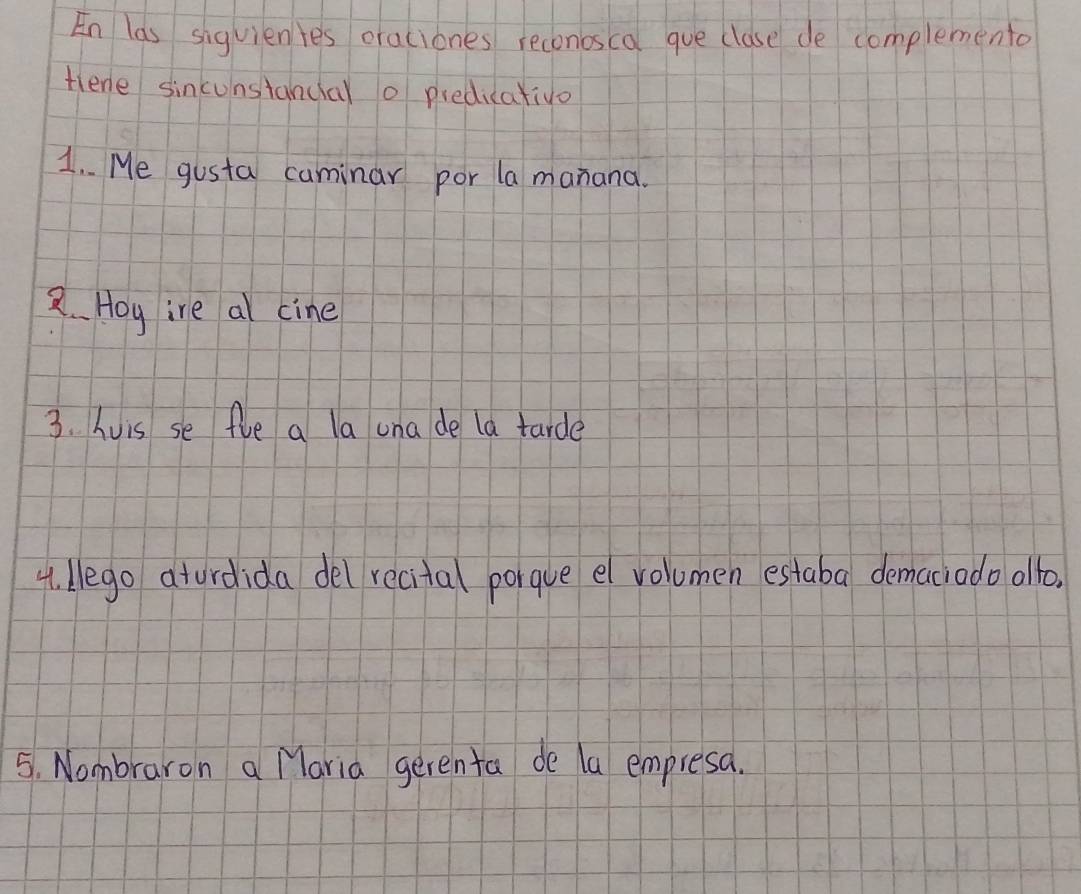 En las siguientes oraciones reconosca que clase de complemento
tiene sincunstancial o predicativo
1.. Me gusta caminar por la mañana.
2.. Hoy ire al cine
3. Luis se fue a la una de la tarde
4. llego aturdida del recital porque el volumen estaba demaciado alto.
5. Nombraron a Maria gerenta de la empresa.